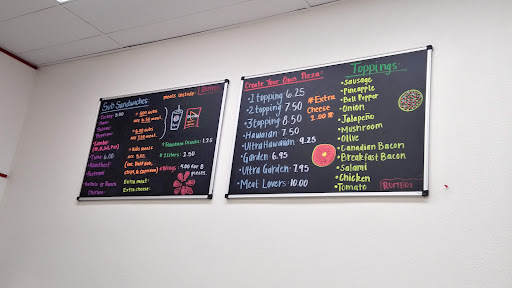 Sub Sandwiches
meals include:
Turkey 5.00
Ham
Salami
Supreme
Tuna 6.00
Roastbeef
Pastrami
Buffalo or Ranch
Chicken
Kids meals
Fountain Drinks: 1.25
2 Liters: 2.50
Wings: 9.00 for 8
pieces
Extra meat:
Extra cheese:
Create Your Own Pizza
1 topping 6.25
2 topping 7.50
3 topping 8.50
Hawaiian 7.50
Ultra Hawaiian 9.25
Garden 6.95
Ultra Garden: 7.95
Meat Lovers: 10.00
#Extra
Cheese
2.00
Toppings:
Sausage
Pineapple
Bell Pepper
Onion
Jalapeño
Mushroom
Olive
Canadian Bacon
Breakfast Bacon
Salami
Chicken
Tomato
ROMEOS